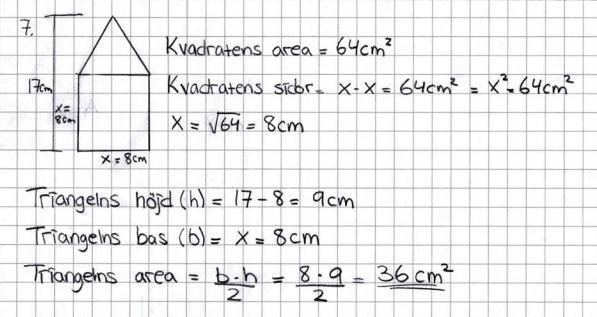 7.
Kvadratens area = 64cm²
17cm
Kvadratens sidor = x·x = 64cm² = x² = 64cm²
x=
8cm
A
x = √64 = 8cm
x = 8cm
Triangelns höjd (h) = 17-8 = 9cm
Triangelns bas (b) = x = 8cm
Triangelns area = b·h/2 = 8·9/2 = 36 cm²